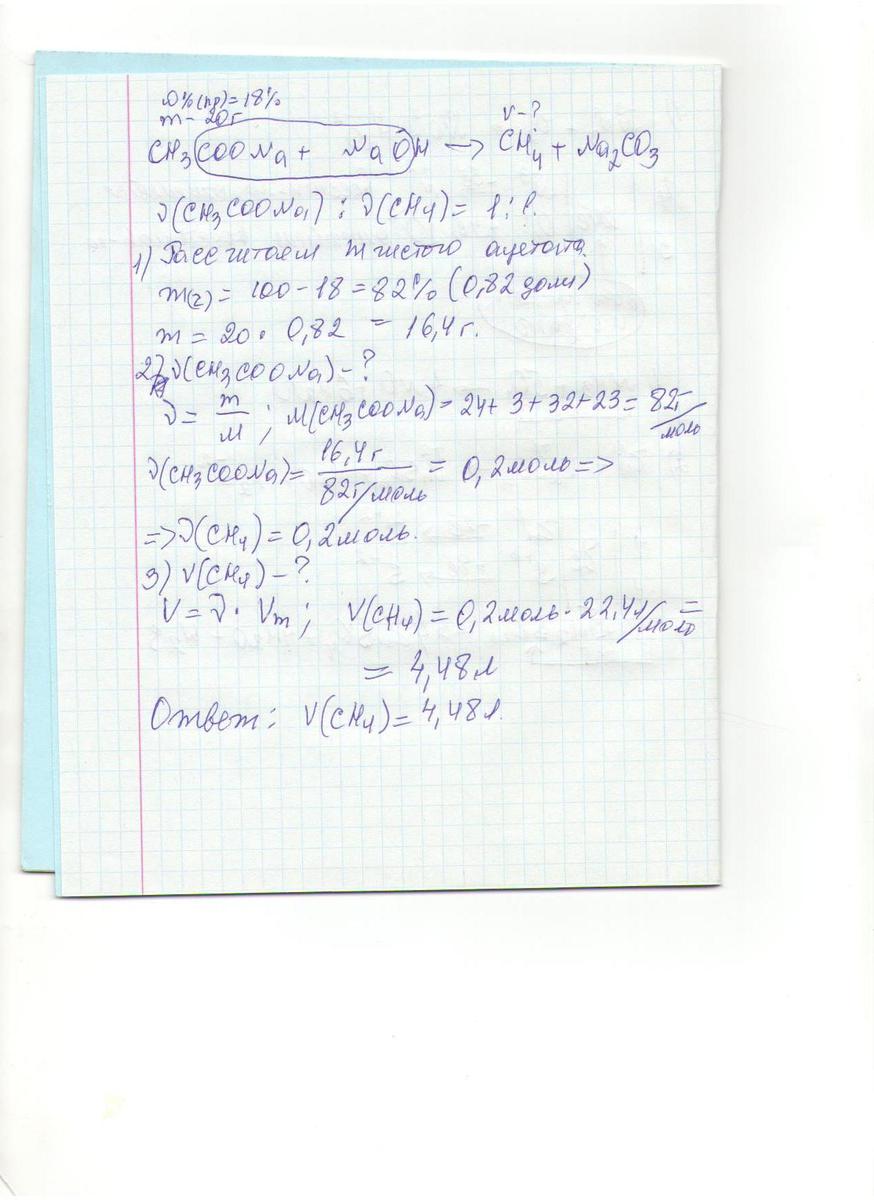 ω%(пр)=18%
m - 20г V-?
CH₃COONa + NaOH → CH₄ + Na₂CO₃
ν(CH₃COONa) : ν(CH₄) = 1 : 1.
1) Рассчитаем m чистого ацетата.
m(г) = 100 - 18 = 82% (0,82 доли)
m = 20 · 0,82 = 16,4 г.
2) ν(CH₃COONa) - ?
ν = m/M ; M(CH₃COONa) = 24 + 3 + 32 + 23 = 82г/моль
ν(CH₃COONa) = 16,4 г / 82г/моль = 0,2 моль =>
=> ν(CH₄) = 0,2 моль.
3) V(CH₄) - ?
V = ν · Vm ; V(CH₄) = 0,2 моль · 22,4 л/моль =
= 4,48 л
Ответ: V(CH₄) = 4,48 л.